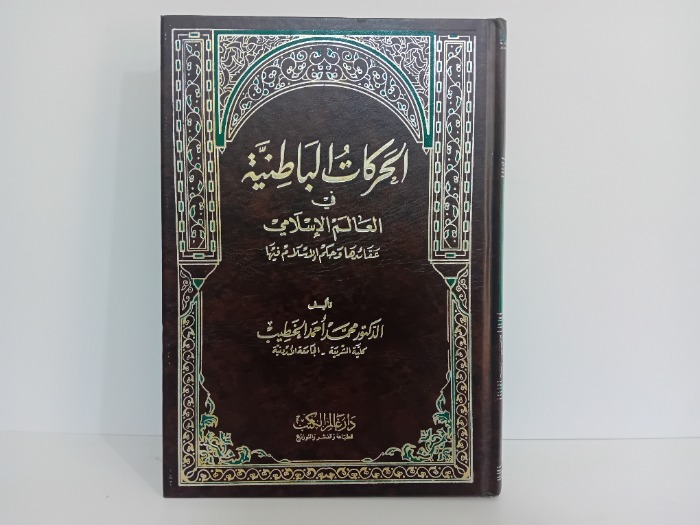 الحركات الباطنيّة
في
العالم الإسلامي
عقائدها وحكم الاسلام فيها
تأليف
الدكتور محمد أحمد الخطيب
كلية الشريعة - الجامعة الأردنية
دار عالم الكتب
للطباعة والنشر والتوزيع